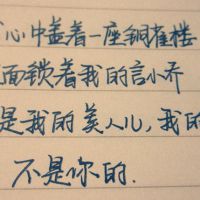 心中盖着一座铜雀楼
面锁着我的言小乔
是我的美人儿,我的
不是你的.